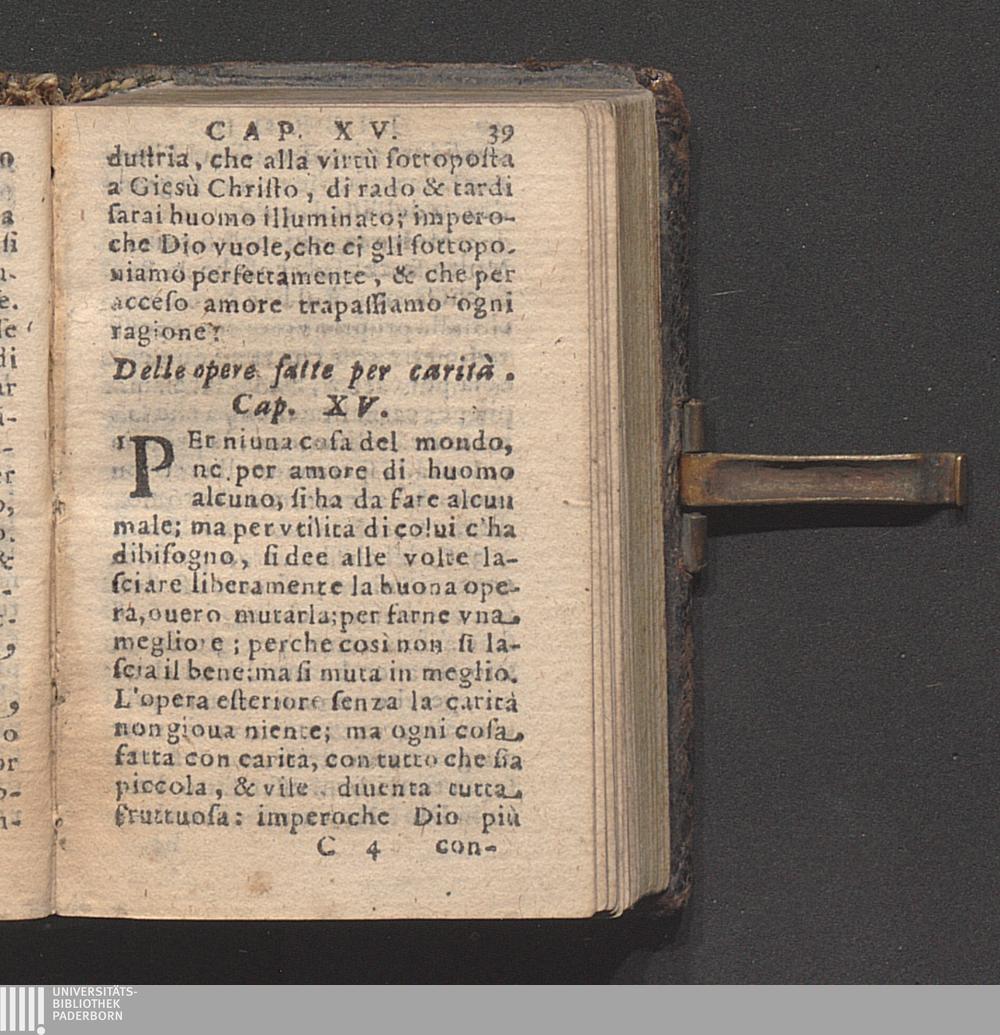 CAP. XV. 39
duſtria, che alla virtù ſottopoſta
a Giesù Chriſto, di rado & tardi
ſarai huomo illuminato; impero-
che Dio vuole, che ci gli ſottopo-
niamo perfettamente, & che per
acceſo amore trapaſſiamo ogni
ragione.
Delle opere fatte per carità.
Cap. XV.
1 PEr niuna coſa del mondo,
ne per amore di huomo
alcuno, ſi ha da fare alcun
male; ma per vtilità di colui c'ha
dibiſogno, ſi dee alle volte la-
ſciare liberamente la buona ope-
ra, ouero mutarla; per farne vna
megliore; perche così non ſi la-
ſcia il bene: ma ſi muta in meglio.
L'opera eſteriore ſenza la carità
non gioua niente; ma ogni coſa
fatta con carità, con tutto che ſia
piccola, & vile, diuenta tutta
fruttuoſa: imperoche Dio più
C 4 con-
UNIVERSITÄTS-
BIBLIOTHEK
PADERBORN